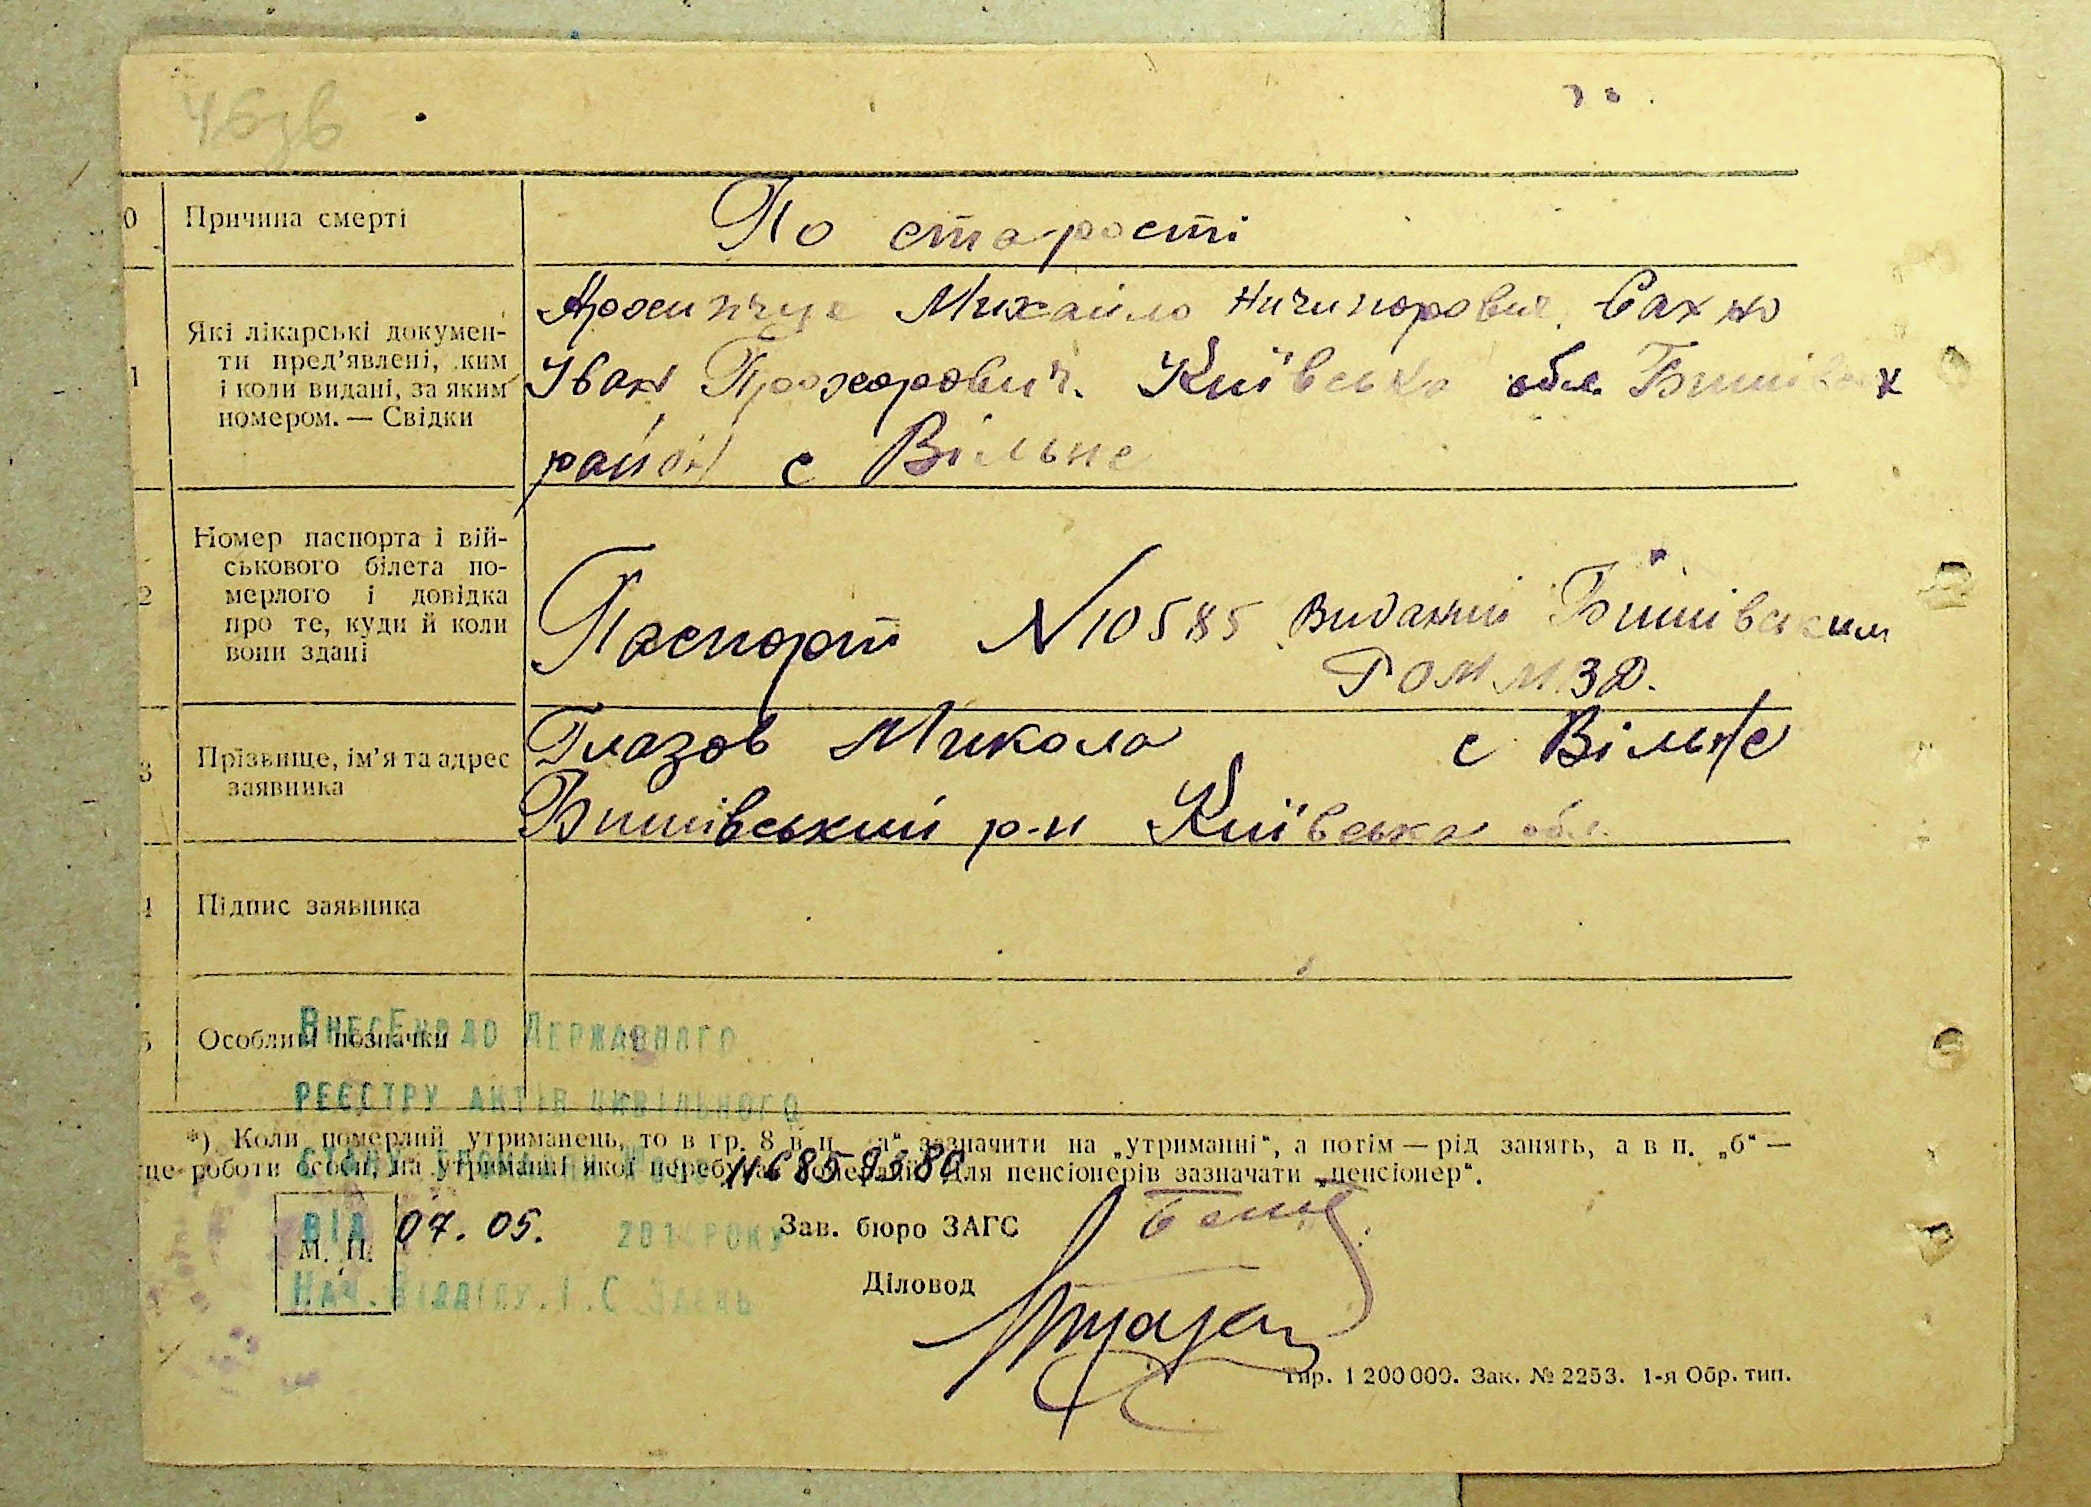 46зв
0 Причина смерті
По старості
1 Які лікарські документи пред'явлені, ким
і коли видані, за яким
номером. — Свідки
Михайло Ничипорович Сахно
Іван Прохорович. Київська обл. Бишівськ
район с Вільне
2 Номер паспорта і вій-
ськового білета по-
мерлого і довідка
про те, куди й коли
вони здані
Паспорт N 10585 Виданий Бишівським
РОМ МЗД.
3 Прізвище, ім'я та адрес
заявника
Глазов Микола с Вільне
Бишівський р-н Київська обл.
4 Підпис заявника
5 Особливі позначки
Внесено до Державного
реєстру актів цивільного
стану громадян
*) Коли померлий утриманець, то в гр. 8 в п. „а“ зазначити на „утриманні“, а потім — рід занять, а в п. „б“ —
це роботи особи, на утриманні якої перебував померлий. Для пенсіонерів зазначати „пенсіонер“.
від 07.05. 201 року
М. П.
Зав. бюро ЗАГС
Діловод
Нач. відділу. І. С.
Тир. 1 200 000. Зак. № 2253. 1-я Обр. тип.